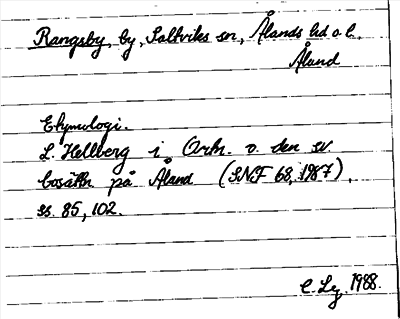 Rangsby, by, Saltviks sn, Ålands hd o l.
Åland
Etymologi.
L. Hellberg i Ortn. o. den sv
bosättn på Åland (SNF 68, 1987),
ss. 85, 102.
1988.